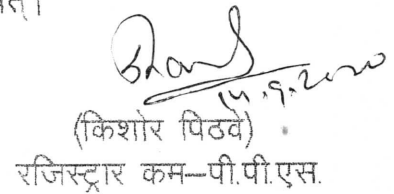 14.9.2020
(किशोर पिठवे)
रजिस्ट्रार कम–पी.पी.एस.